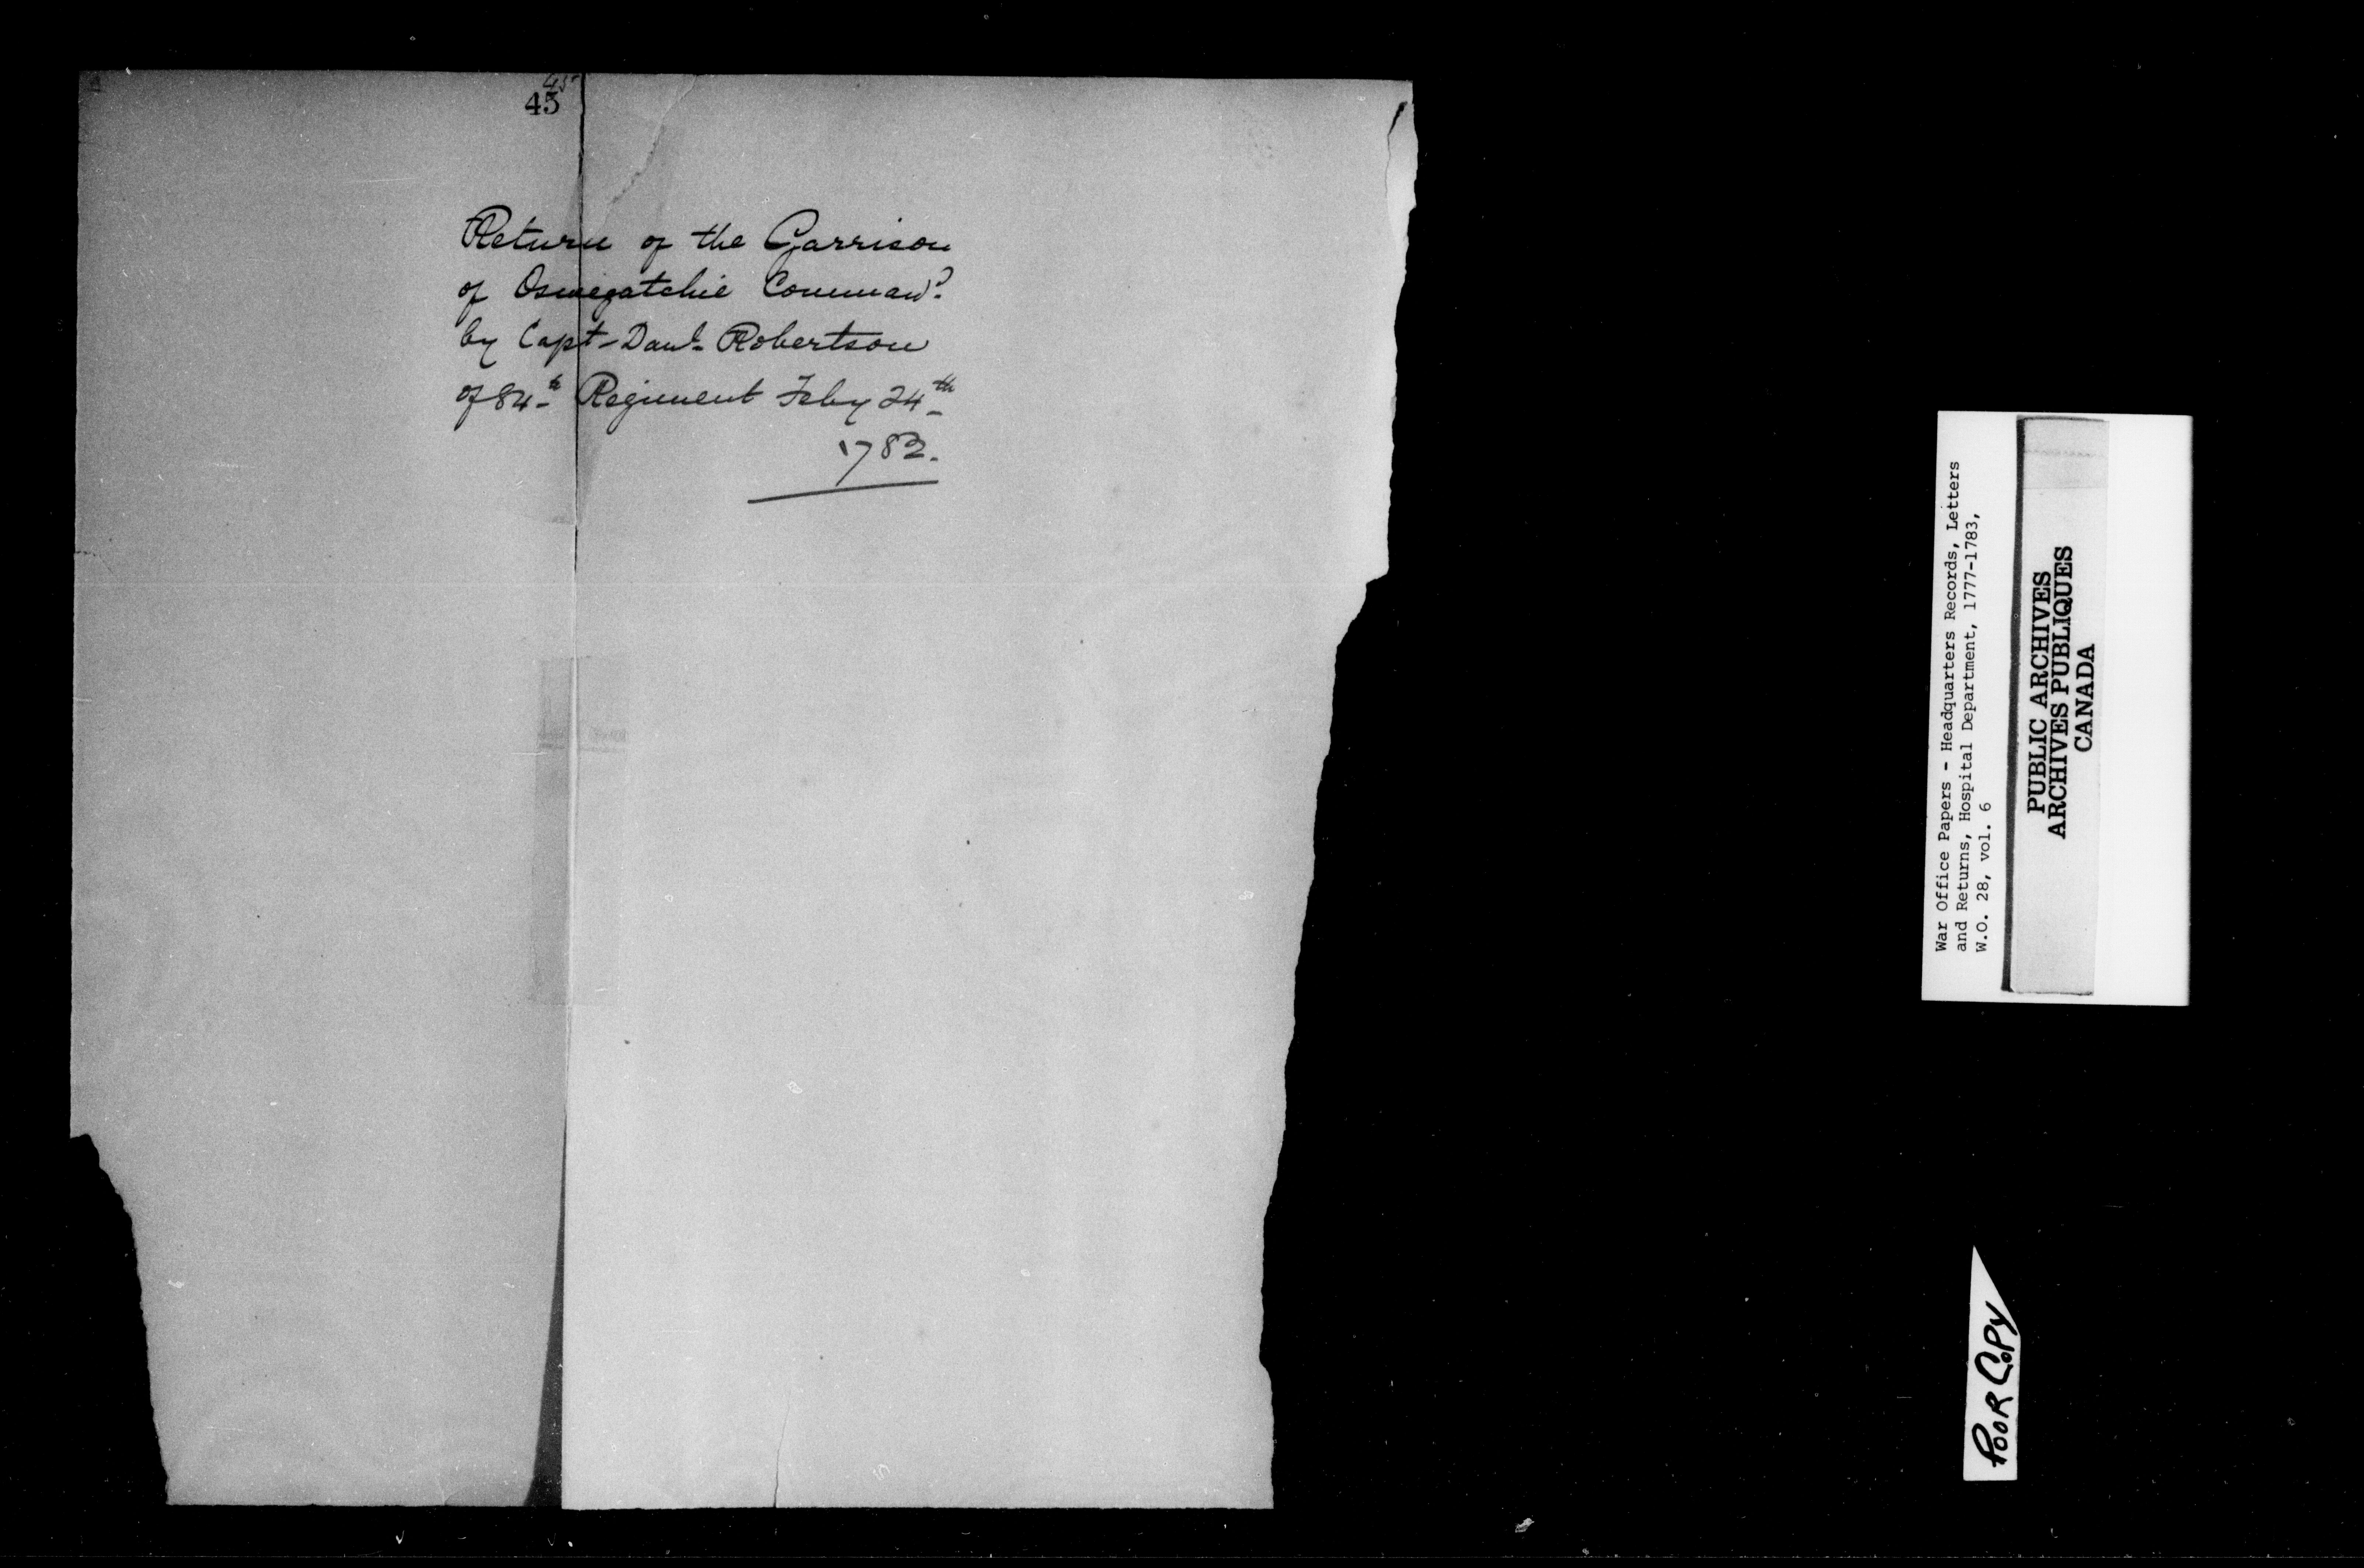 45
45
Return of the Garrison
of Oswegatchie Command.
by Capt-Danl. Robertson
of 84th Regiment Feby 24th
1782.
War Office Papers - Headquarters Records, Letters
and Returns, Hospital Department, 1777-1783,
W.O. 28, vol. 6
PUBLIC ARCHIVES
ARCHIVES PUBLIQUES
CANADA
POOR COPY